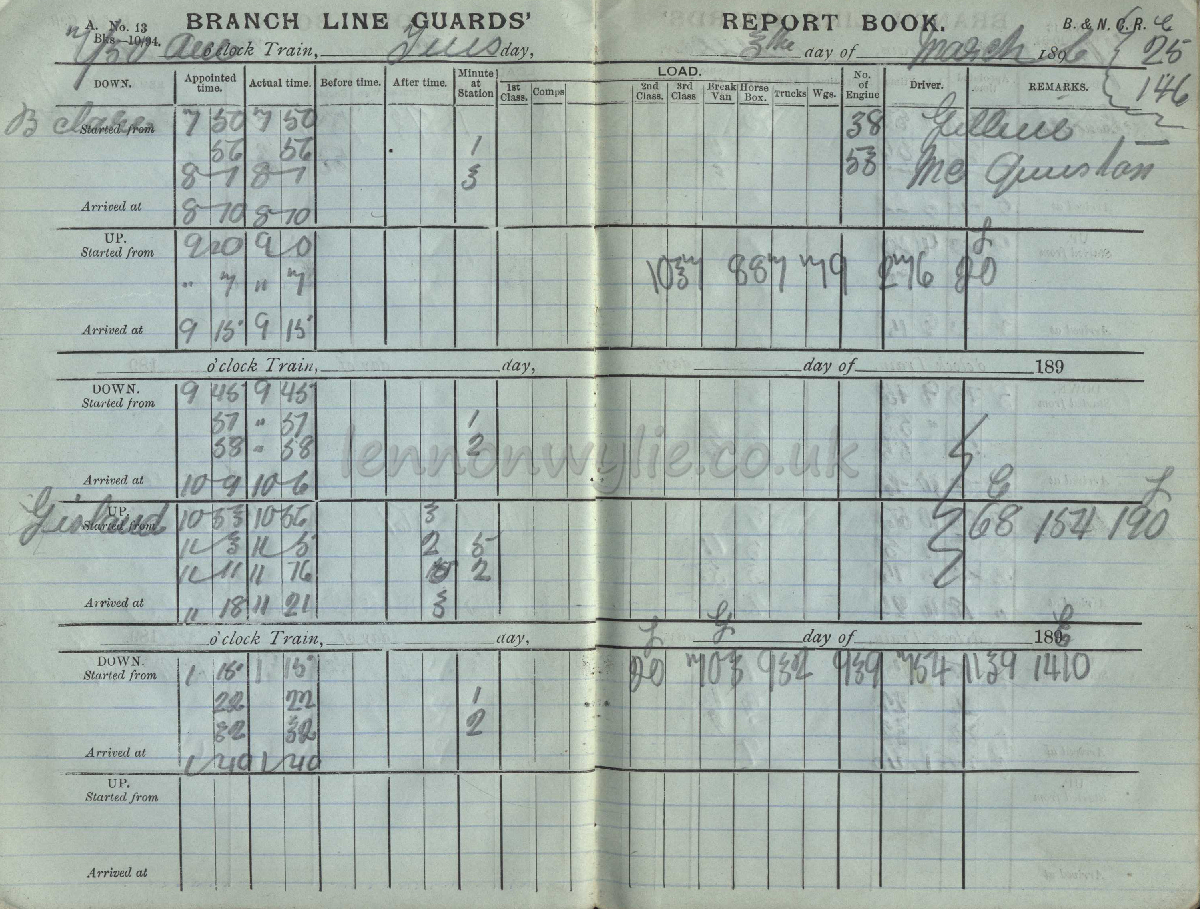 A. No. 13
Bks—10/94.
BRANCH LINE GUARDS' REPORT BOOK. B. & N. C. R.
7/50 o'clock Train, Tues day, 3 day of March 1896 25
146
DOWN. Appointed time. Actual time. Before time. After time. Minute at Station 1st Class. Comps LOAD. 2nd Class. 3rd Class Break Van Horse Box. Trucks Wgs. No. of Engine Driver. REMARKS.
B clare Started from 7 50 7 50 38
56 56 1 53 Mc Quistan
8 - 1 8 - 1 3
Arrived at 8 - 10 8 - 10
UP.
Started from 9 20 9 0
" 7 " 7 1037 887 79 276 20
Arrived at 9 15 9 15
o'clock Train, day, day of 189
DOWN.
Started from 9 45 9 45
51 " 51 1
58 - 58 2
lennonwylie.co.uk
Arrived at 10 - 9 10 - 6
UP.
Started from 10 53 10 56 3 68 154 190
11 3 11 5 2 5
11 11 11 16 2
Arrived at 11 18 11 21 3
o'clock Train, day, day of 189
DOWN.
Started from 1 15 1 15 20 703 932 939 754 1139 1410
22 22 1
32 32 2
Arrived at 1 40 1 40
UP.
Started from
Arrived at